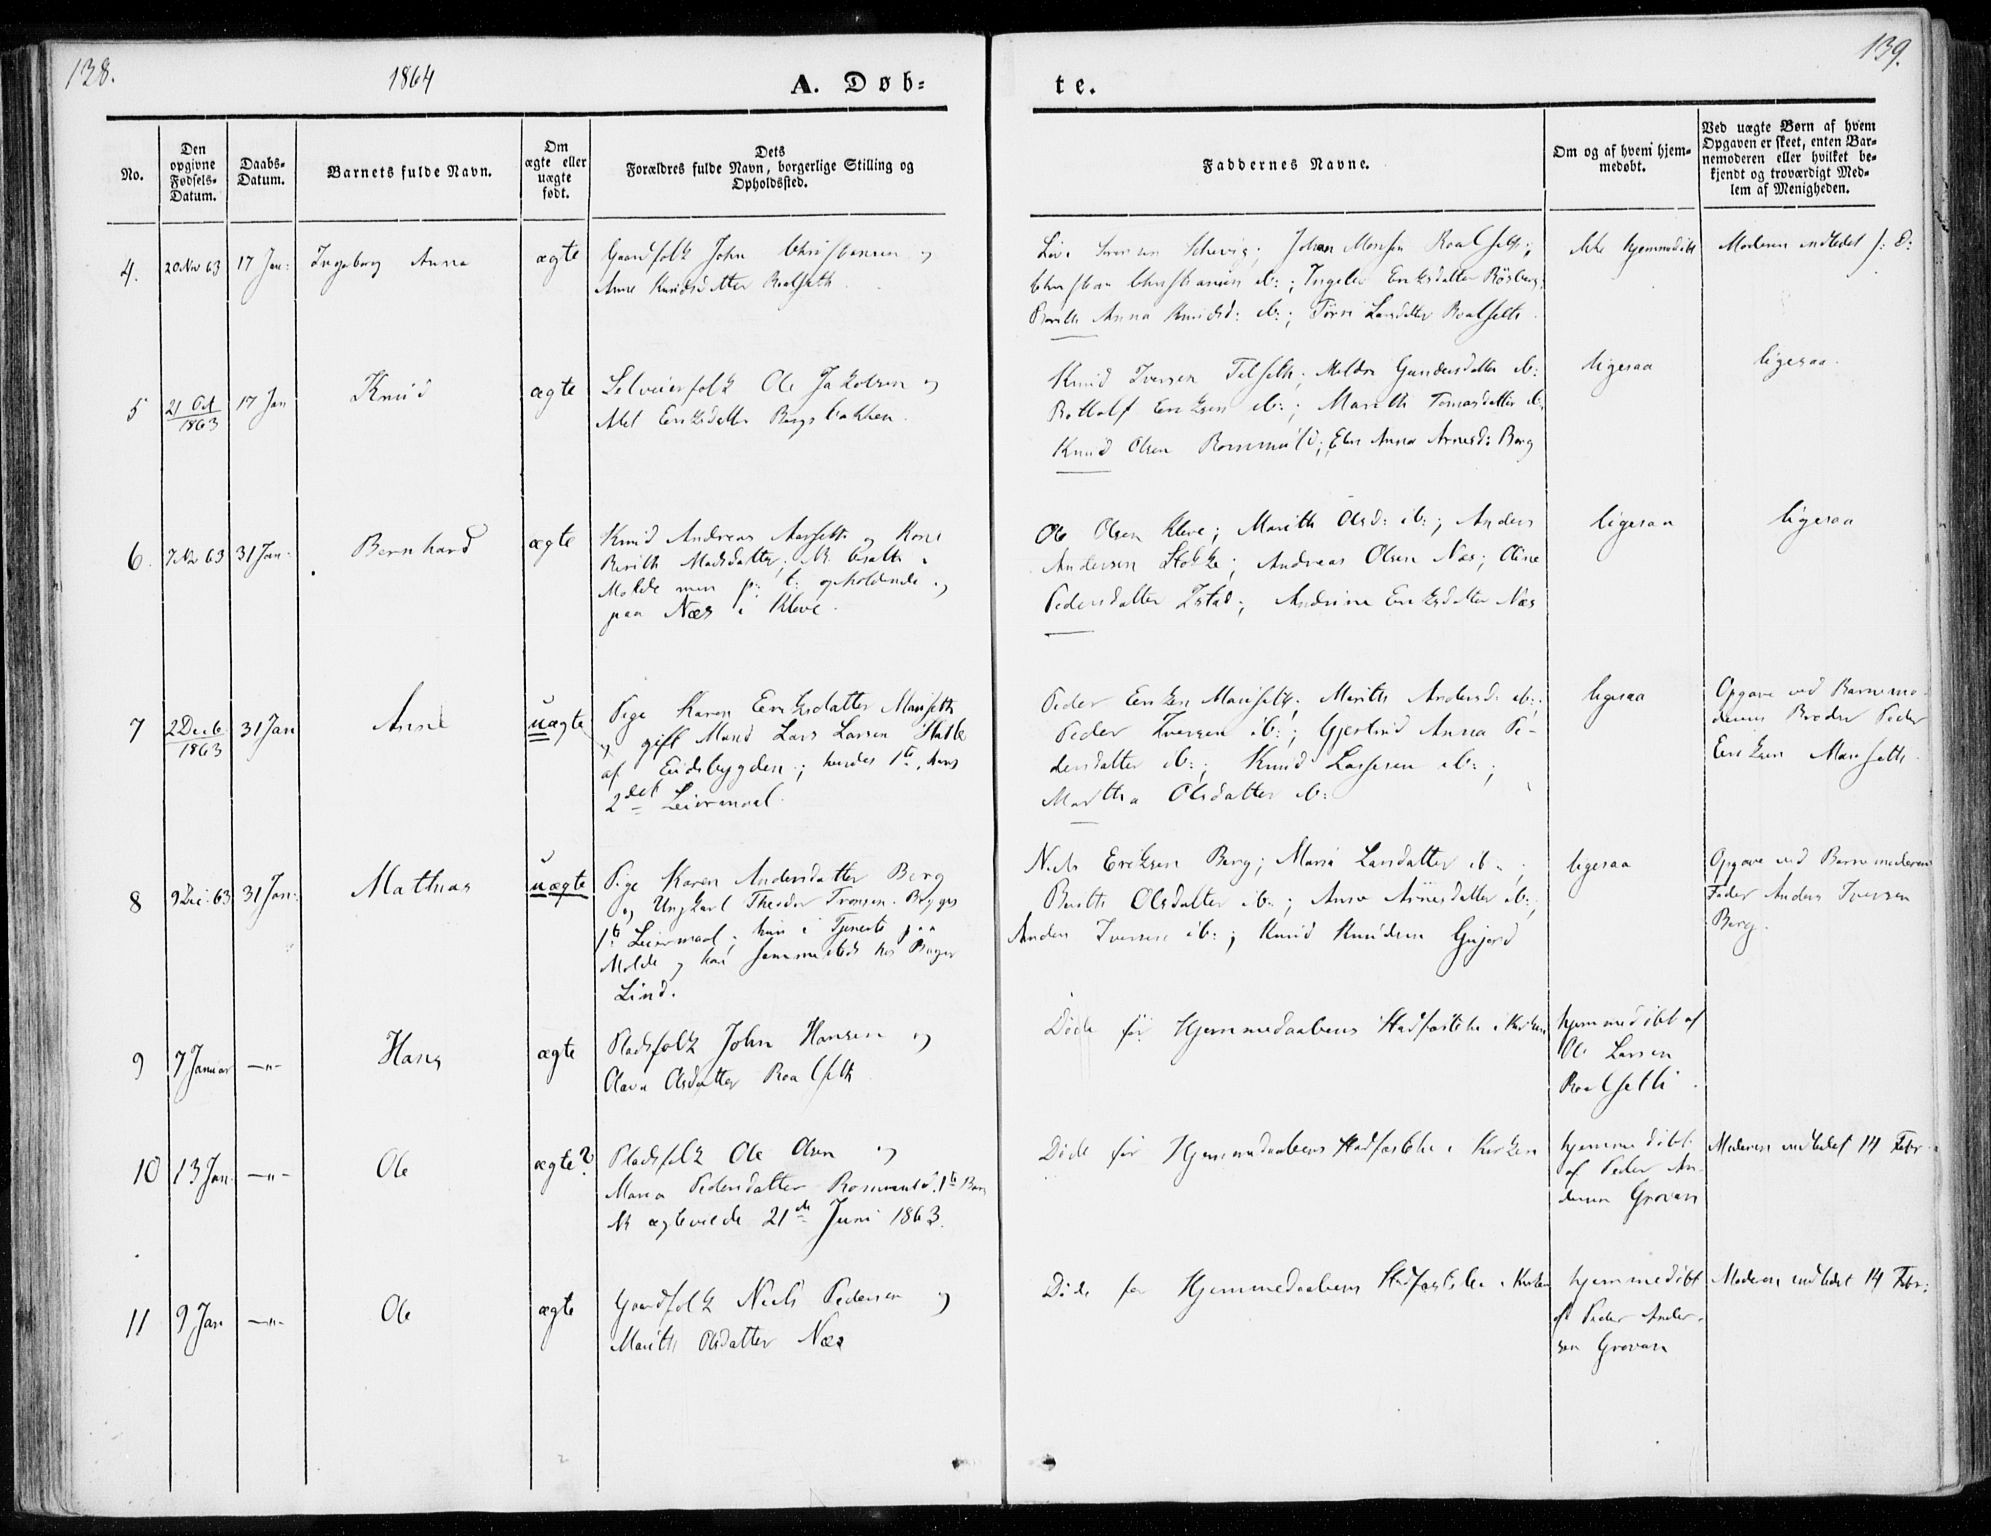 138.
1864
A. Døb-
te.
139.
No.
Den
opgivne
Fødsels-
Datum.
Daabs-
Datum.
Barnets fulde Navn.
Om
ægte eller
uægte
født.
Dets
Forældres fulde Navn, borgerlige Stilling og
Opholdssted.
Faddernes Navne.
Om og af hvem hjem-
medøbt.
Ved uægte Børn af hvem
Opgaven er skeet, enten Bar-
nemoderen eller hvilket be-
kjendt og troværdigt Med-
lem af Menigheden.
4.
20 Nov 63
17 Jan:
Ingeborg Anna
ægte
Gaardfolk John Christensen og
Anne Knudsdatter Roalseth
Johan Monsen Roalseth;
Christian Christiansen ib:; Ingeb Eriksdatter Rösberg;
Berith Anna Knudsd: ib:; Larsdatter Roalseth
ikke hjemmedöbt
Moderen indledet s: D:
5
21 Oct
1863
17 Jan
Knud
ægte
Selveierfolk Ole Jakobsen og
Eriksdatter Bergsbakken
Knud Iversen Gundersdatter ib:
Eriksen ib:; Marith Tomasdatter ib:
Knud Olsen; Elen Anna Arnesd: Berg
ligesaa
ligesaa.
6.
7 Nov 63
31 Jan.
Bernhard
ægte
Knud Andreas Aarseth og Kone
Berith Madsdatter,
Molde men p: t: opholdende
paa Næs i Kleve.
Ole Olsen Kleve; Marith Olsd: ib:; Anders
Andersen Stokke; Andreas Olsen Næs; Oline
Pedersdatter Istad; Andrine Eriksdatter Næs
ligesaa
ligesaa
7
2 Decb
1863
31 Jan
Anne
uægte
Pige Karen Eriksdatter Mariseth
og gift Mand Lars Larsen
af Eidsbygden; hendes 1te, hans
2det Leiermaal.
Peder Eriksen Mariseth; Marith Andersd: ib:;
Peder Iversen ib:; Gjertrud Anna Pe-
dersdatter ib:; Knud Lassesen ib:;
Martha Olsdatter ib:
ligesaa
Opgave ved Barnemo-
derens Broder Peder
Eriksen Mariseth.
8
9 Dec: 63
31 Jan:
Mathias
uægte
Pige Karen Andersdatter Berg
og Ungkarl Theodor Tronsen
1te Leiermaal; hun i Tjeneste paa
Molde og han sammesteds hos Bager
Lind.
Niels Eriksen Berg; Maria Larsdatter ib:;
Berith Olsdatter ib:; Anne Arnesdatter ib:;
Anders Iversen ib:; Knud Knudsen Gujord
ligesaa
Opgave ved Barnemoderens
Fader Anders Iversen
Berg.
9
7 Januar
—"—
Hans
ægte
Pladsfolk John Hansen og
Olava Olsdatter Roalseth
Döde för Hjemmedaabens Stadfæstelse i Kirken
hjemmedöbt af
Ole Larsen
Roalseth
10
13 Jan
—"—
Ole
ægte?
Pladsfolk Ole Olsen og
Maria Pedersdatter 1te Barn
ægteviede 21de Juni 1863.
Döde för Hjemmedaabens Stadfæstelse i Kirken
hjemmedöbt
af Peder An-
dersen Grovan
Moderen indledet 14 Febr.
11
9 Jan
—"—
Ole
ægte
Gaardfolk Niels Pedersen og
Marith Olsdatter Næs
Döde för Hjemmedaabens Stadfæstelse i Kirken
hjemmedöbt
af Peder Ander-
sen Grovan
Moderen indledet 14 Febr: